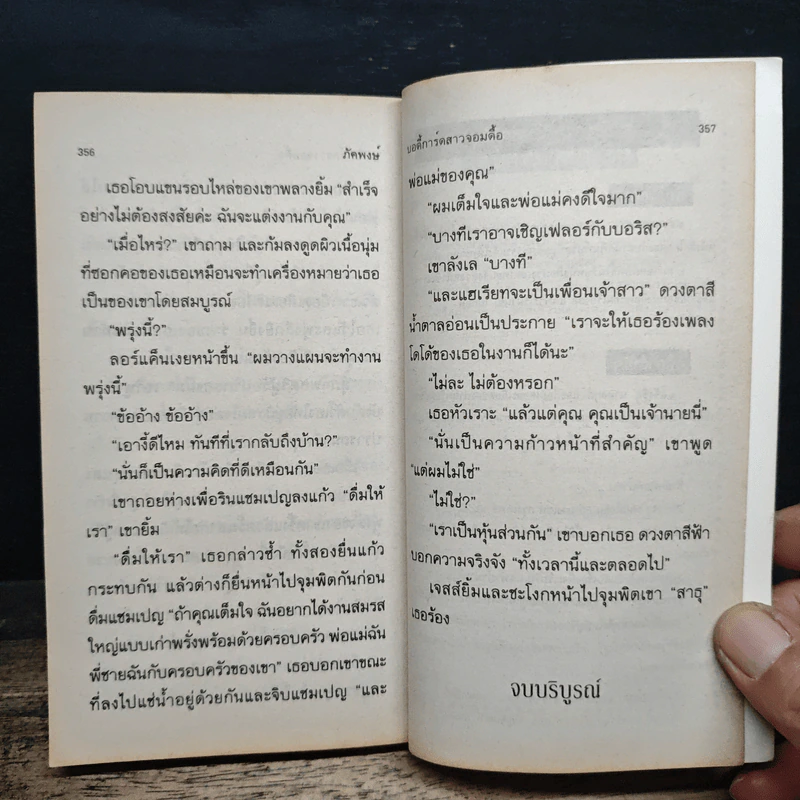 356
ภัคพงษ์
เธอโอบแขนรอบไหล่ของเขาพลางยิ้ม “สำเร็จ
อย่างไม่ต้องสงสัยค่ะ ฉันจะแต่งงานกับคุณ”
“เมื่อไหร่?” เขาถาม และก้มลงดูดผิวเนื้อนุ่ม
ที่ซอกคอของเธอเหมือนจะทำเครื่องหมายว่าเธอ
เป็นของเขาโดยสมบูรณ์
“พรุ่งนี้?”
ลอร์แค็นเงยหน้าขึ้น “ผมวางแผนจะทำงาน
พรุ่งนี้”
“ข้ออ้าง ข้ออ้าง”
“เอางี้ดีไหม ทันทีที่เรากลับถึงบ้าน?”
“นั่นก็เป็นความคิดที่ดีเหมือนกัน”
เขาถอยห่างเพื่อรินแชมเปญลงแก้ว “ดื่มให้
เรา” เขายิ้ม
“ดื่มให้เรา” เธอกล่าวซ้ำ ทั้งสองยื่นแก้ว
กระทบกัน แล้วต่างก็ยื่นหน้าไปจุมพิตกันก่อน
ดื่มแชมเปญ “ถ้าคุณเต็มใจ ฉันอยากได้งานสมรส
ใหญ่แบบเก่าพรั่งพร้อมด้วยครอบครัว พ่อแม่ฉัน
พี่ชายฉันกับครอบครัวของเขา” เธอบอกเขาขณะ
ที่ลงไปแช่น้ำอยู่ด้วยกันและจิบแชมเปญ “และ
บอดี้การ์ดสาวจอมดื้อ
357
พ่อแม่ของคุณ”
“ผมเต็มใจและพ่อแม่คงดีใจมาก”
“บางทีเราอาจเชิญเฟลอร์กับบอริส?”
เขาลังเล “บางที”
“และแฮเรียทจะเป็นเพื่อนเจ้าสาว” ดวงตาสี
น้ำตาลอ่อนเป็นประกาย “เราจะให้เธอร้องเพลง
โดโด้ของเธอในงานก็ได้นะ”
“ไม่ละ ไม่ต้องหรอก”
เธอหัวเราะ “แล้วแต่คุณ คุณเป็นเจ้านายนี่”
“นั่นเป็นความก้าวหน้าที่สำคัญ” เขาพูด
“แต่ผมไม่ใช่”
“ไม่ใช่?”
“เราเป็นหุ้นส่วนกัน” เขาบอกเธอ ดวงตาสีฟ้า
บอกความจริงจัง “ทั้งเวลานี้และตลอดไป”
เจสส์ยิ้มและชะโงกหน้าไปจุมพิตเขา “สาธุ”
เธอร้อง
จบบริบูรณ์